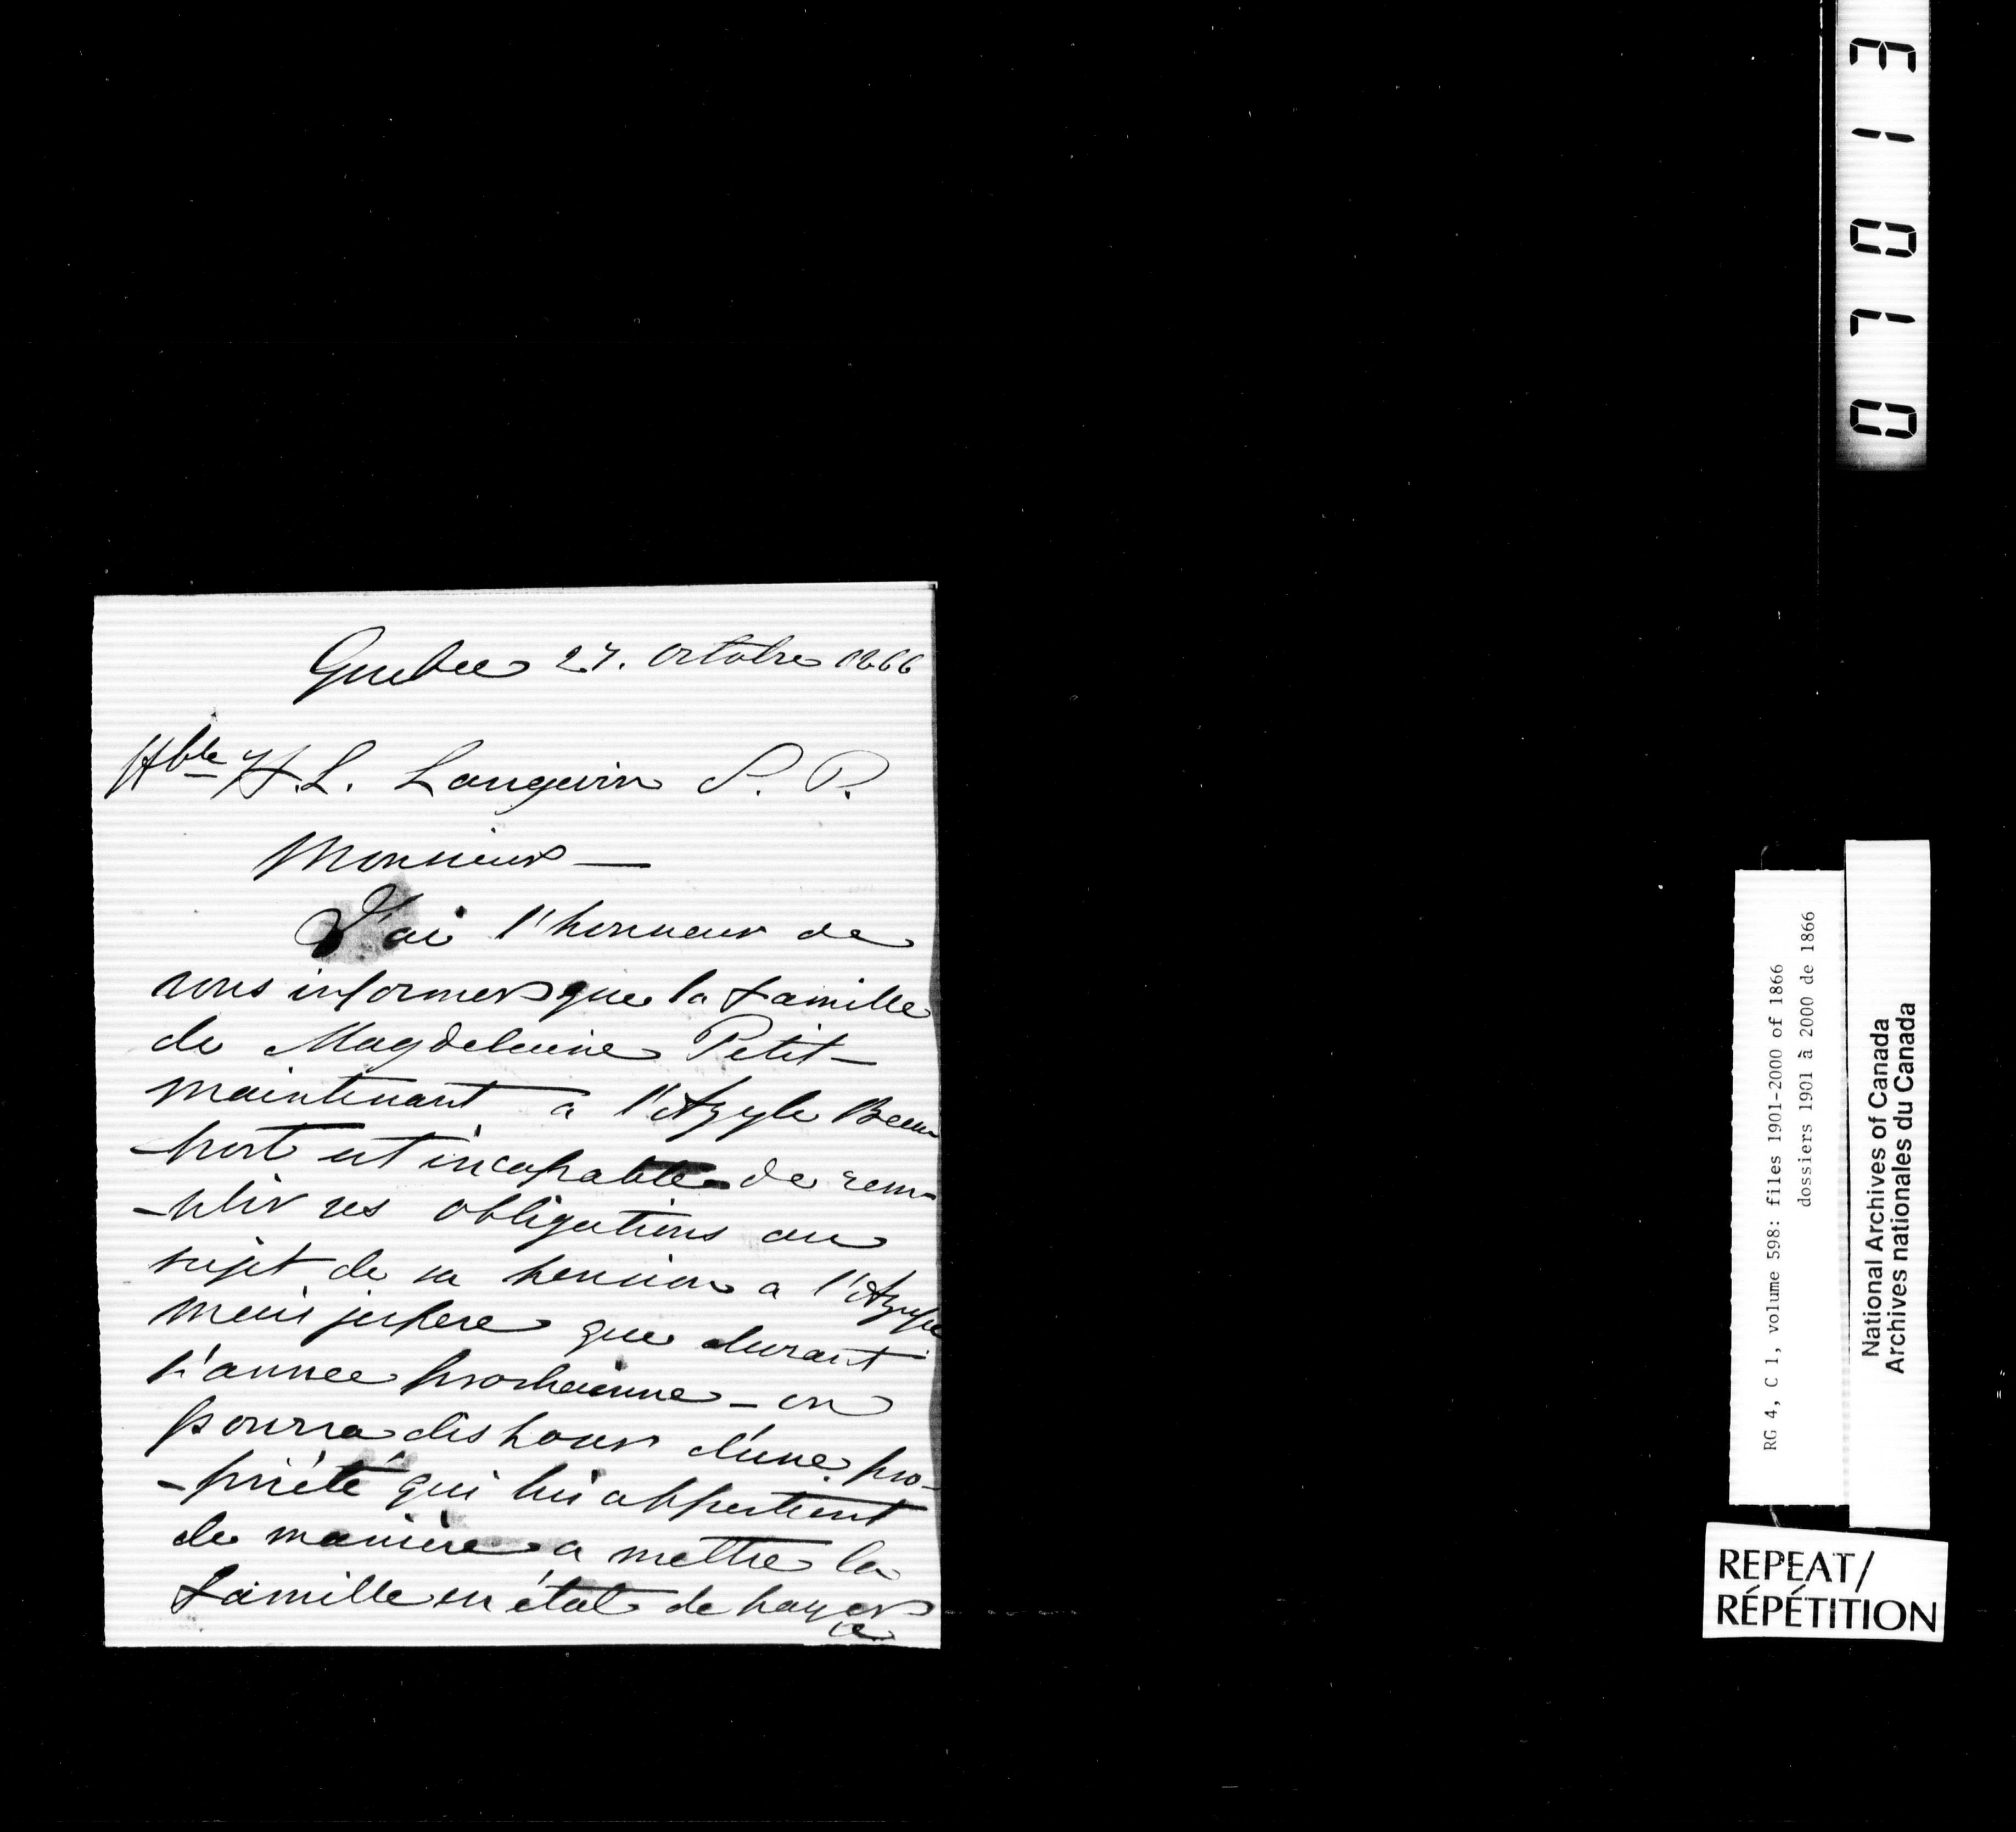 Quebec 27. Octobre 1866
Hble H. L. Langevin S. P.
Monsieur —
J'ai l'honneur de
vous informer que la famille
de Magdeleine Petit —
maintenant a l'Azyle Beau
-port est incapable de rem-
-plir ses obligations au
sujet de sa pension a l'Azyle
mais j'espere que durant
l'annee prochainne - on
pourra disposer d'une pro-
-priété qui lui appartient
de manière a mettre la
famille en état de payer
a
0 7 0 1 3
RG 4, C 1, volume 598: files 1901-2000 of 1866
dossiers 1901 à 2000 de 1866
National Archives of Canada
Archives nationales du Canada
REPEAT/
RÉPÉTITION